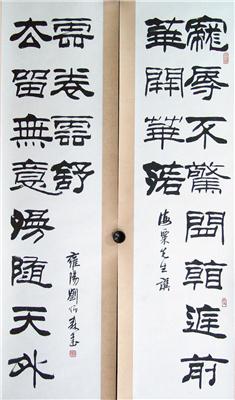 寵辱不驚閒看庭前
華開華落
海粟先生
去留無意漫隨天外
雲卷雲舒
雍陽劉炳森書